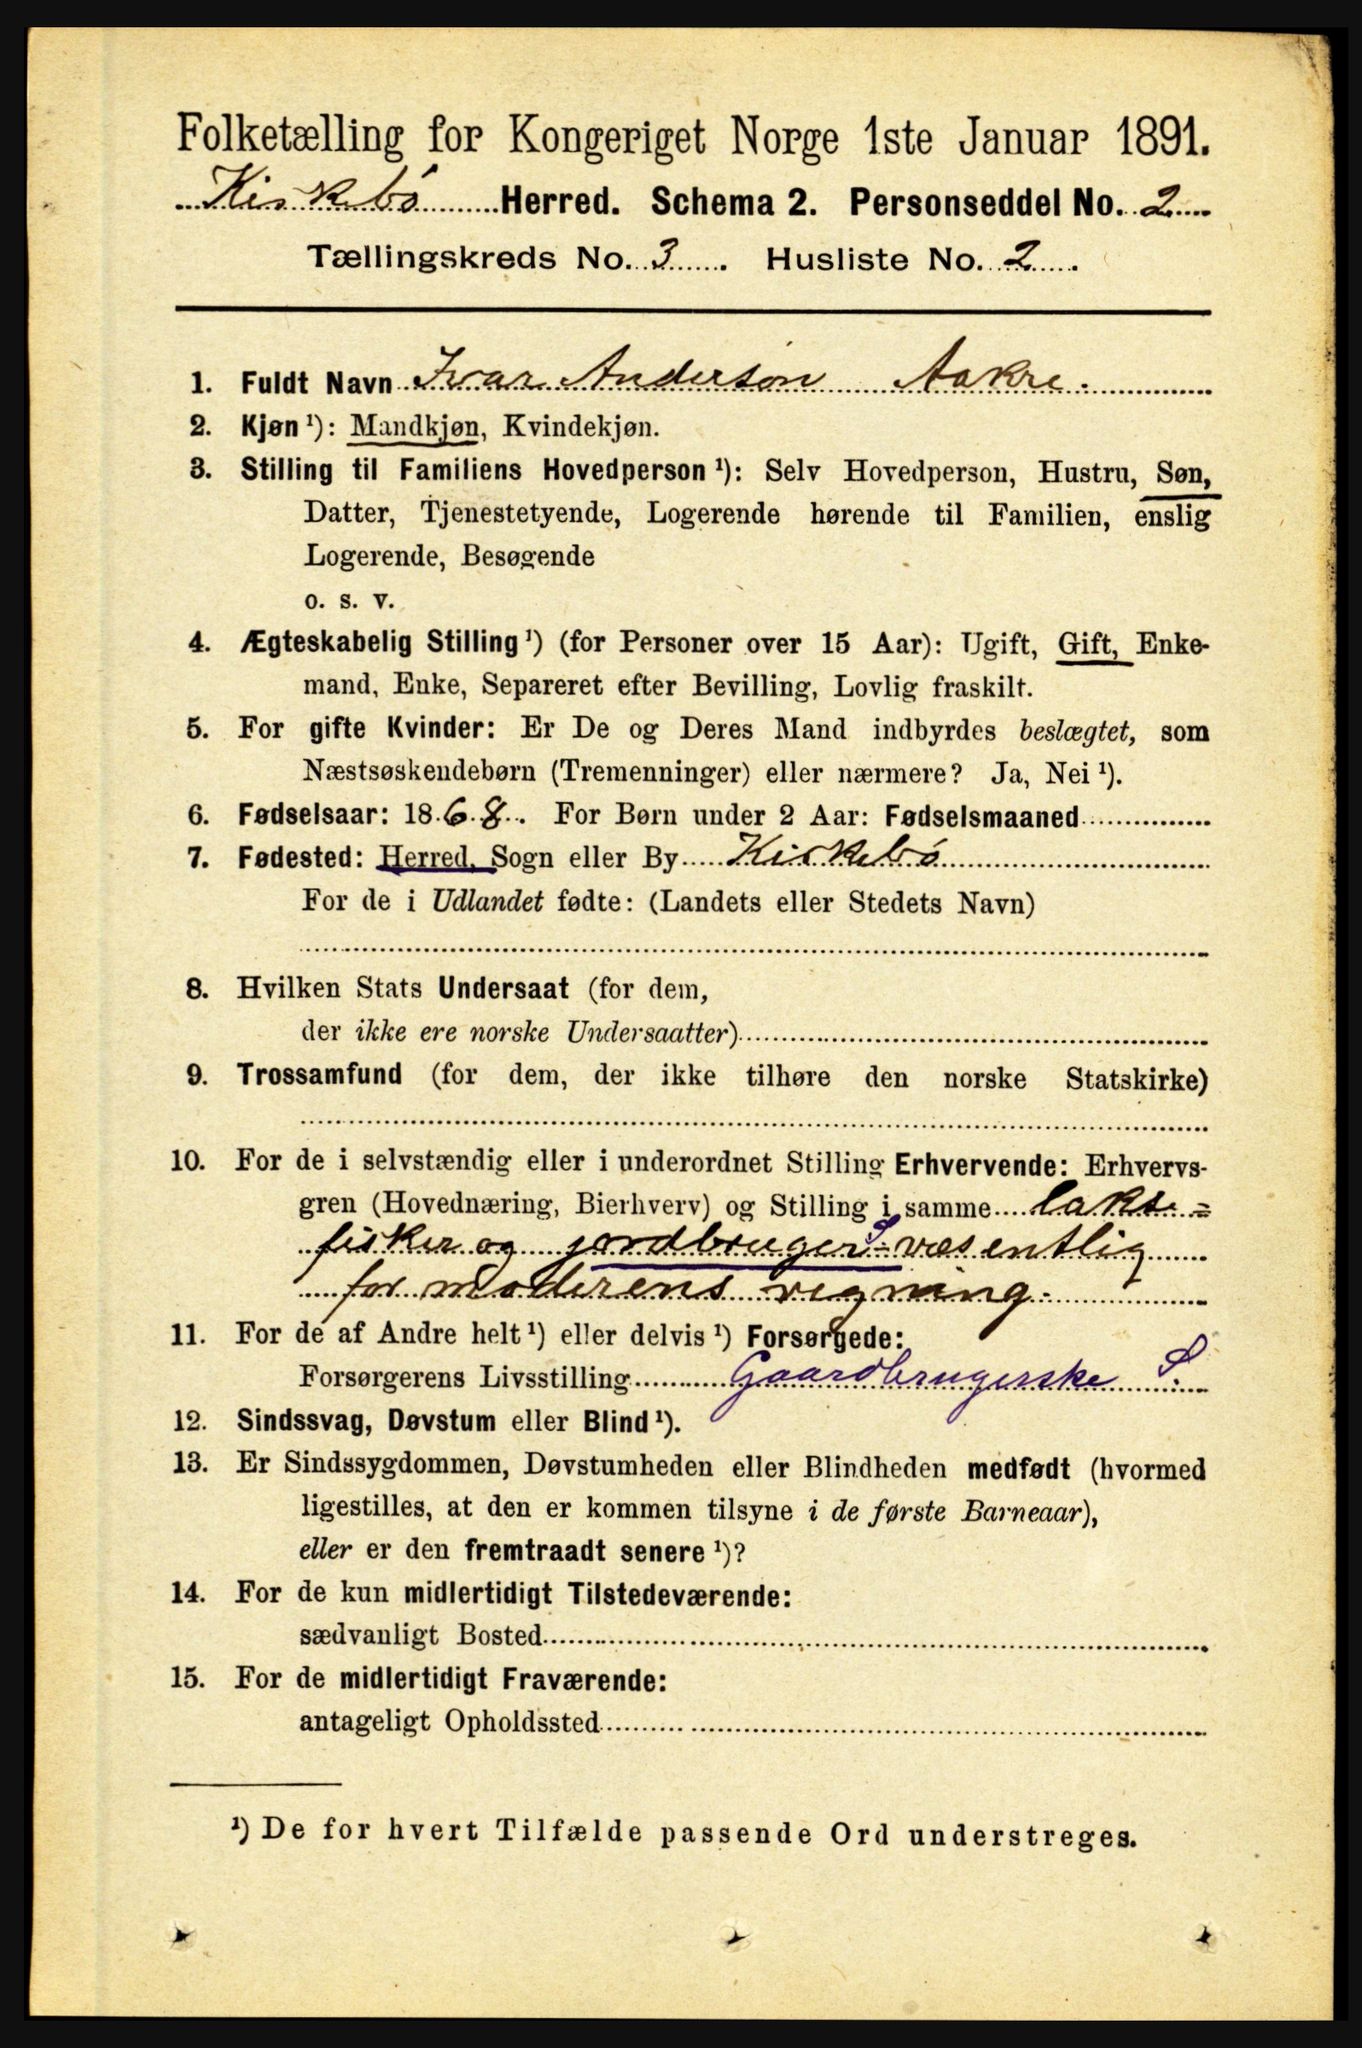 Folketælling for Kongeriget Norge 1ste Januar 1891.
Kirkebö Herred. Schema 2. Personseddel No. 2
Tællingskreds No. 3. Husliste No. 2.
1. Fuldt Navn Ivar Anderson Aakre.
2. Kjøn ¹): Mandkjøn, Kvindekjøn.
3. Stilling til Familiens Hovedperson ¹): Selv Hovedperson, Hustru, Søn,
Datter, Tjenestetyende, Logerende hørende til Familien, enslig
Logerende, Besøgende
o. s. v.
4. Ægteskabelig Stilling ¹) (for Personer over 15 Aar): Ugift, Gift, Enke-
mand, Enke, Separeret efter Bevilling, Lovlig fraskilt.
5. For gifte Kvinder: Er De og Deres Mand indbyrdes beslægtet, som
Næstsøskendebørn (Tremenninger) eller nærmere? Ja, Nei ¹).
6. Fødselsaar: 1868. For Børn under 2 Aar: Fødselsmaaned
7. Fødested: Herred, Sogn eller By Kirkebö
For de i Udlandet fødte: (Landets eller Stedets Navn)
8. Hvilken Stats Undersaat (for dem,
der ikke ere norske Undersaatter)
9. Trossamfund (for dem, der ikke tilhøre den norske Statskirke)
10. For de i selvstændig eller i underordnet Stilling Erhvervende: Erhvervs-
gren (Hovednæring, Bierhverv) og Stilling i samme lakse=
fisker og jordbruger S væsentlig
for moderens regning.
11. For de af Andre helt ¹) eller delvis ¹) Forsørgede:
Forsørgerens Livsstilling Gaardbrugerske S.
12. Sindssvag, Døvstum eller Blind ¹).
13. Er Sindssygdommen, Døvstumheden eller Blindheden medfødt (hvormed
ligestilles, at den er kommen tilsyne i de første Barneaar),
eller er den fremtraadt senere ¹)?
14. For de kun midlertidigt Tilstedeværende:
sædvanligt Bosted
15. For de midlertidigt Fraværende:
antageligt Opholdssted
¹) De for hvert Tilfælde passende Ord understreges.